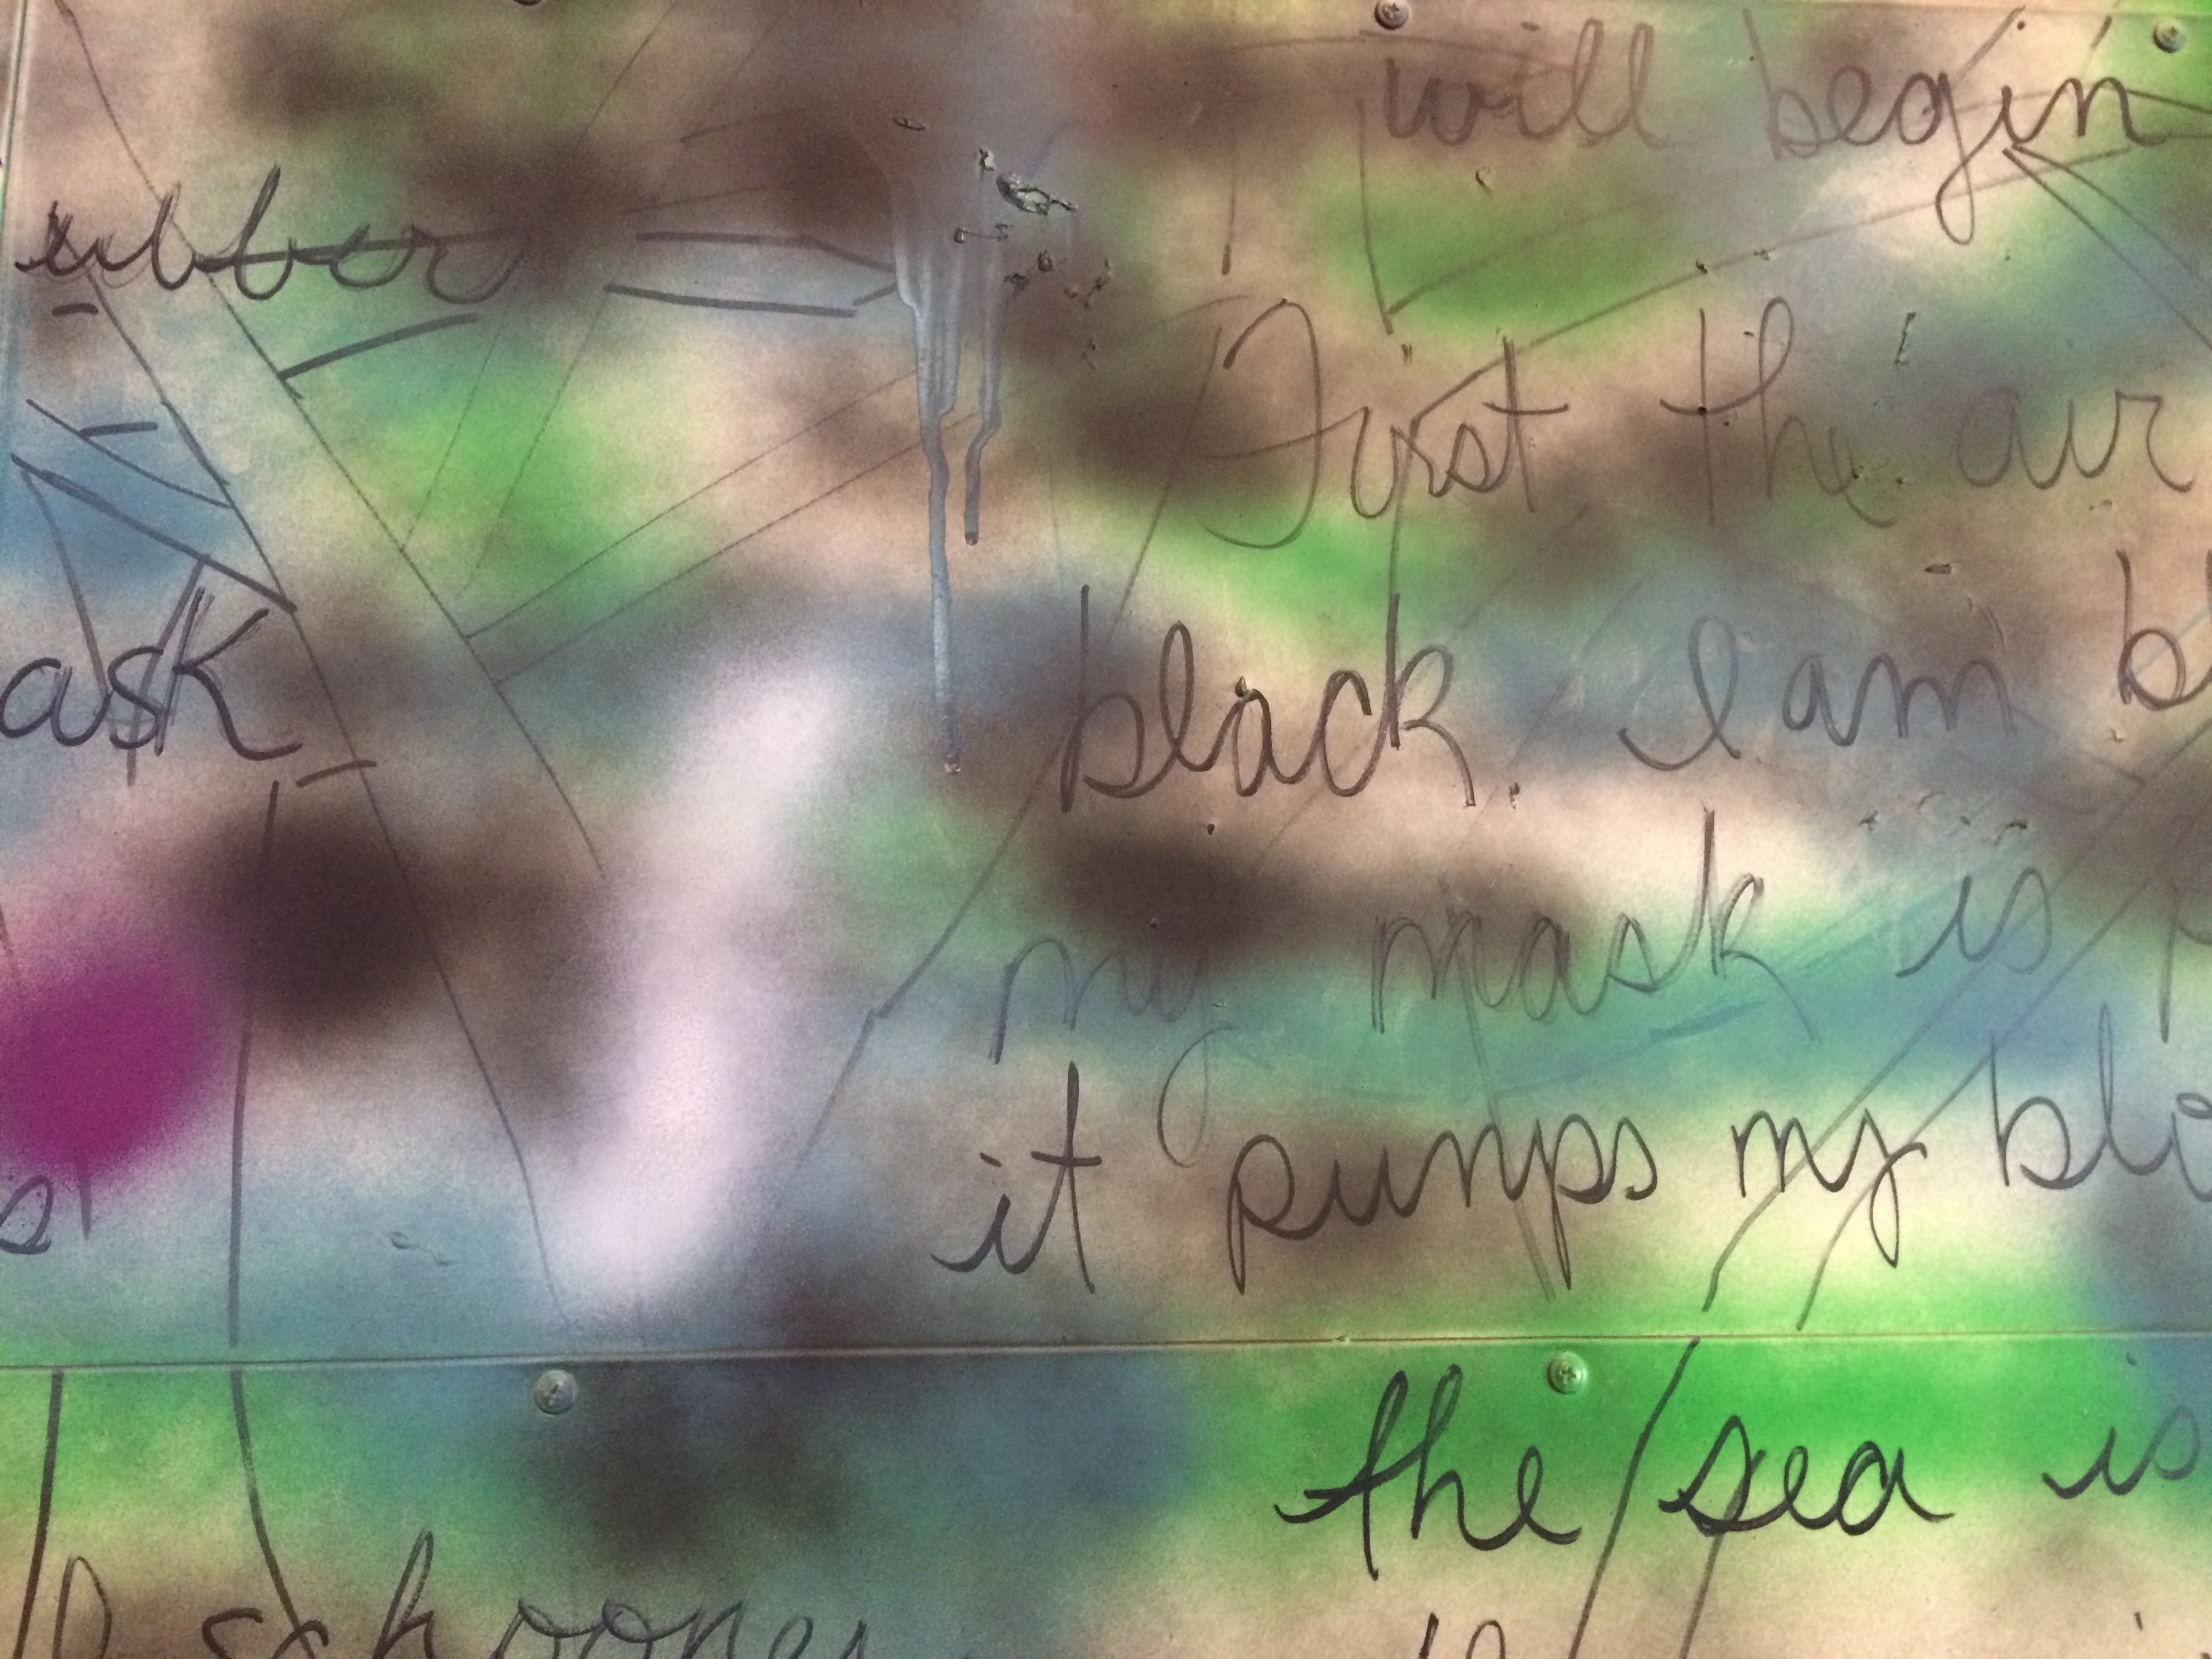 will begin
ubber
First the air
black I am b
ask
my mask is p
it pumps my blo
s
the sea is
schooner